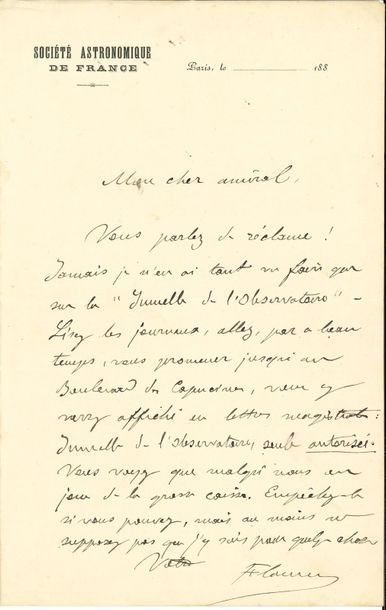 SOCIÉTÉ ASTRONOMIQUE
DE FRANCE
Paris, le 188
Mon cher amiral,
Vous parlez de réclame !
Jamais je n'en ai tant vu faire que
sur la "Jumelle de l'Observatoire" -
Lisez les journaux, allez, par ce beau
temps, vous promener jusqu'au
Boulevard des Capucines, vous y
verrez affiché en lettres
Jumelle de l'Observatoire, seule autorisée.
Vous voyez que malgré nous on
joue de la grosse caisse. Empêchez-le
si vous pouvez, mais au moins ne
supposez pas que j'y sois pour quelque chose
Votre